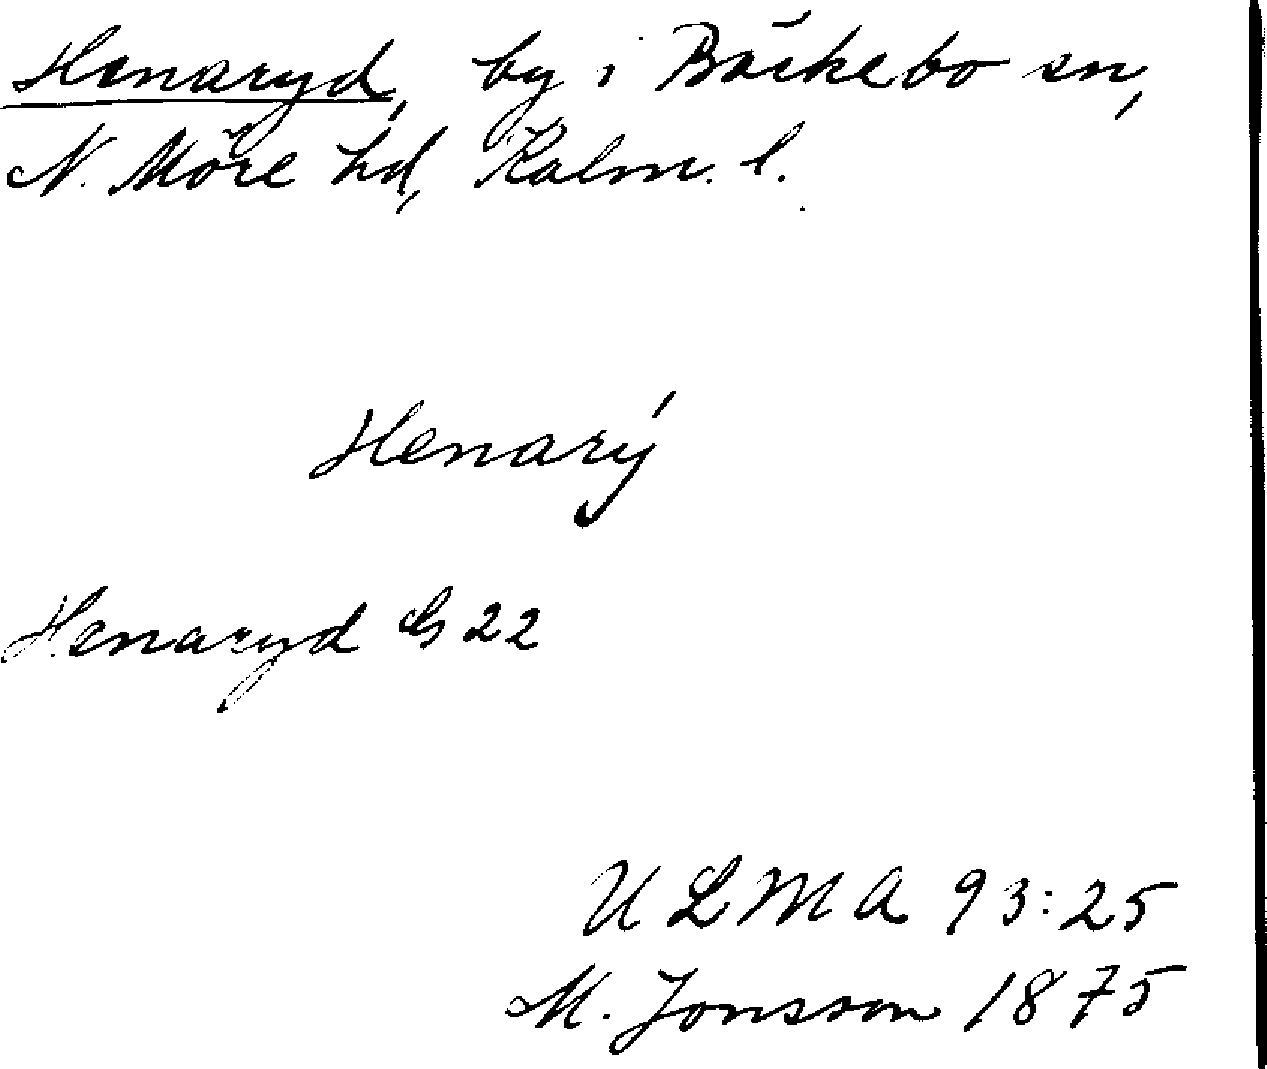 Henaryd, by i Bäckebo sn,
N. Möre hd, Kalm. l.
Henarý
Henaryd G 22
ULMA 93:25
M. Jonsson 1875